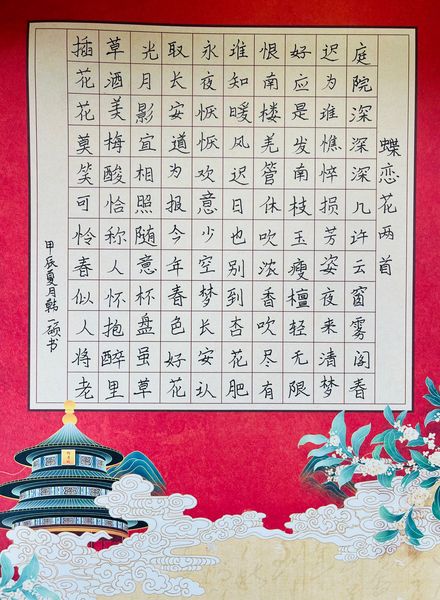 蝶恋花两首
庭院深深深几许云窗雾阁春
迟为谁憔悴损芳姿夜来清梦
好应是发南枝玉瘦檀轻无限
恨南楼羌管休吹浓香吹尽有
谁知暖风迟日也别到杏花肥
永夜恹恹欢意少空梦长安认
取长安道为报今年春色好花
光月影宜相照随意杯盘虽草
草酒美梅酸恰称人怀抱醉里
插花花莫笑可怜春似人将老
甲辰夏月韩一硕书